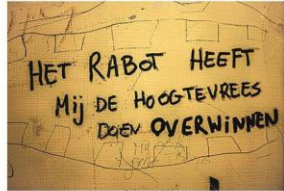 HET RABOT HEEFT
Mij DE HOOGTEVREES
DOEN OVERWINNEN